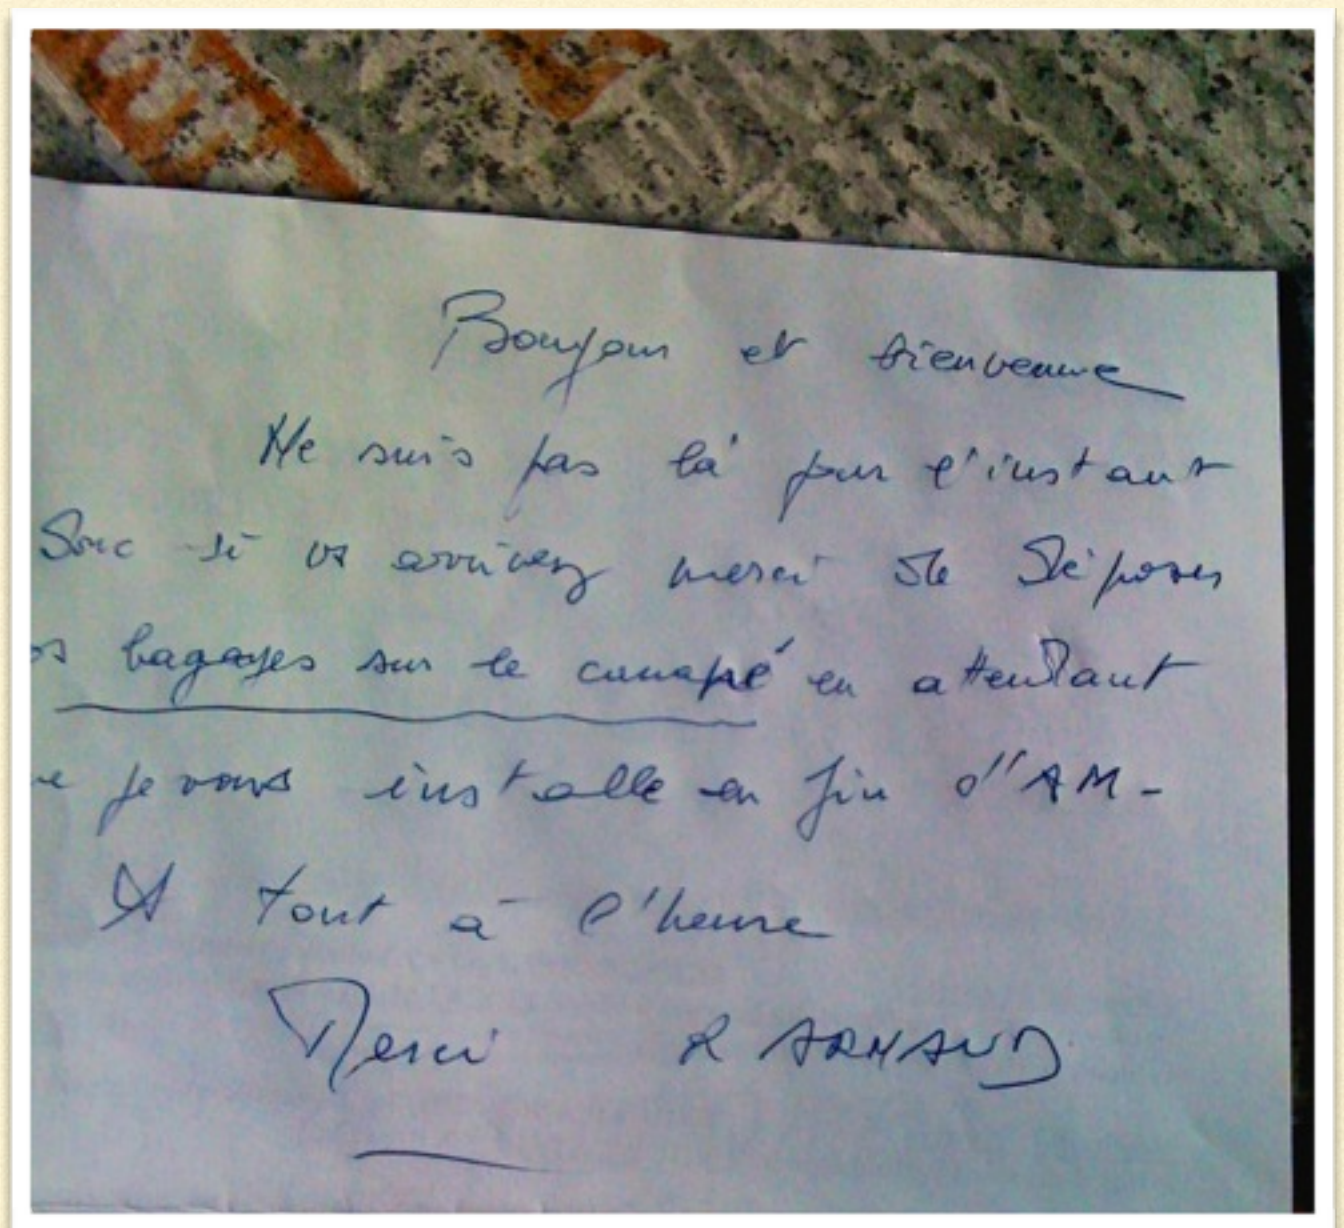 Bonjour et bienvenue
Ne suis pas là pour l'instant
Donc si vs arrivez merci de déposer
os bagages sur le canapé en attendant
e je vous installe en fin d'AM-
A tout à l'heure
Merci R ARNAUD